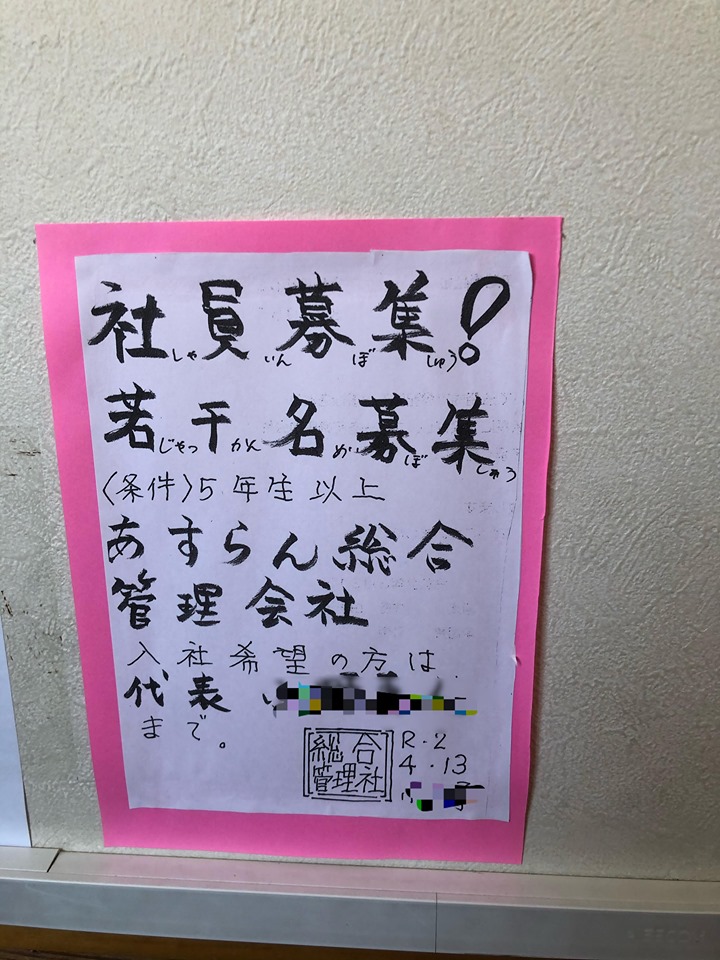 社員募集!
しゃいんぼしゅう
若干名募集
じゃっかんめぼしゅう
〈条件〉5年生以上
あすらん総合
管理会社
入社希望の方は
代表
まで。
総合
管理社
R・2
4・13